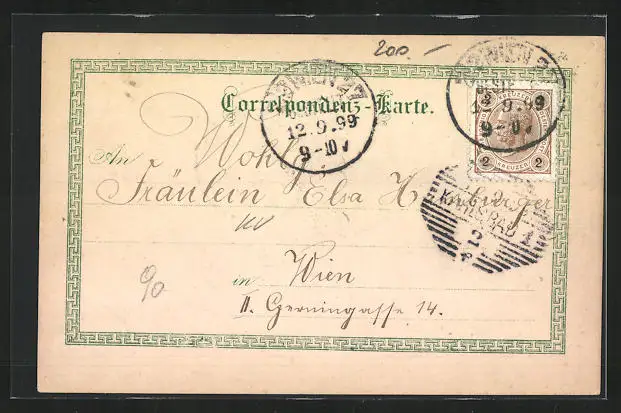 200 —
Correspondenz-Karte.
12.9.99
9-10V
12.9.99
9-10V
2 KREUZER 2
An Wohlg.
Fräulein Elsa Hamburger
KARLSBAD
in Wien
90
II. Czerningasse 14.